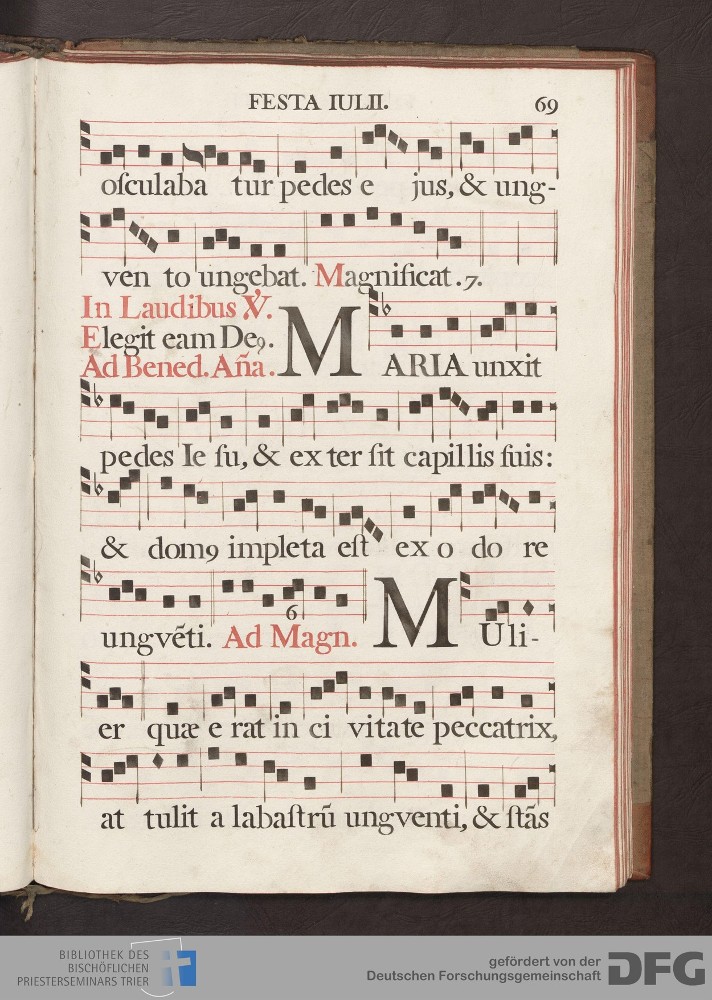 FESTA IULII. 69
oſculaba tur pedes e jus, & ung-
ven to ungebat. Magnificat .7.
In Laudibus ℣.
Elegit eam Deꝰ.
Ad Bened. Aña.
MARIA unxit
pedes Ie ſu, & ex ter ſit capillis ſuis:
& domꝰ impleta eſt ex o do re
ungvẽti. Ad Magn. 6 MUli-
er quæ e rat in ci vitate peccatrix,
at tulit a labaſtrũ ungventi, & ſtãs
BIBLIOTHEK DES
BISCHÖFLICHEN
PRIESTERSEMINARS TRIER
gefördert von der
Deutschen Forschungsgemeinschaft
DFG